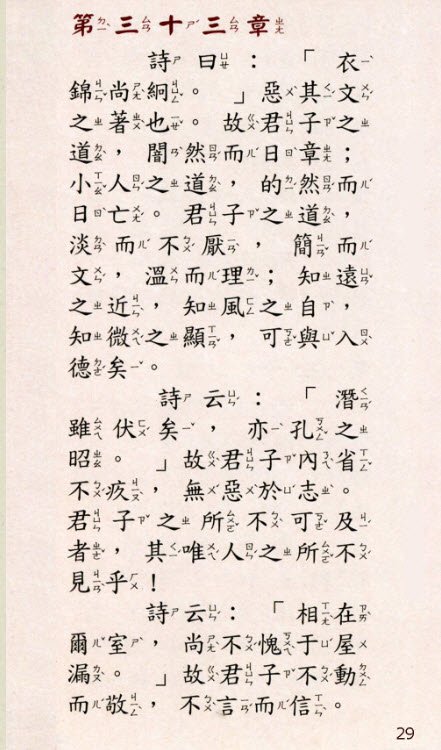 第三十三章
詩曰：「衣
錦尚絅。」惡其文
之著也。故君子之
道，闇然而日章；
小人之道，的然而
日亡。君子之道，
淡而不厭，簡而
文，溫而理；知遠
之近，知風之自，
知微之顯，可與入
德矣。
詩云：「潛
雖伏矣，亦孔之
昭。」故君子內省
不疚，無惡於志。
君子之所不可及
者，其唯人之所不
見乎！
詩云：「相在
爾室，尚不愧于屋
漏。」故君子不動
而敬，不言而信。
29